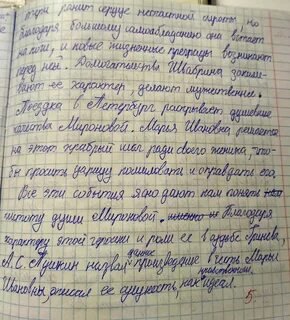 тери ранит сердце несчастной сироты, но
благодаря большому самообладанию она встает
на ноги, и новые жизненные преграды возникают
перед ней. Домогательства Швабрина закаля-
ют её характер, делают мужественнее.
Поездка в Петербург раскрывает душевные
качества Мироновой. Марья Ивановна решается
на этот храбрый шаг ради своего жениха, что-
бы просить царицу помиловать и оправдать его.
Все эти события ясно дают нам понять
чистоту души Мироновой. Благодаря
характеру этой героини и роли её в судьбе Гринева,
А.С. Пушкин назвал данное произведение в честь Марьи
Ивановны, описал её сущность, как нравственный идеал.
5